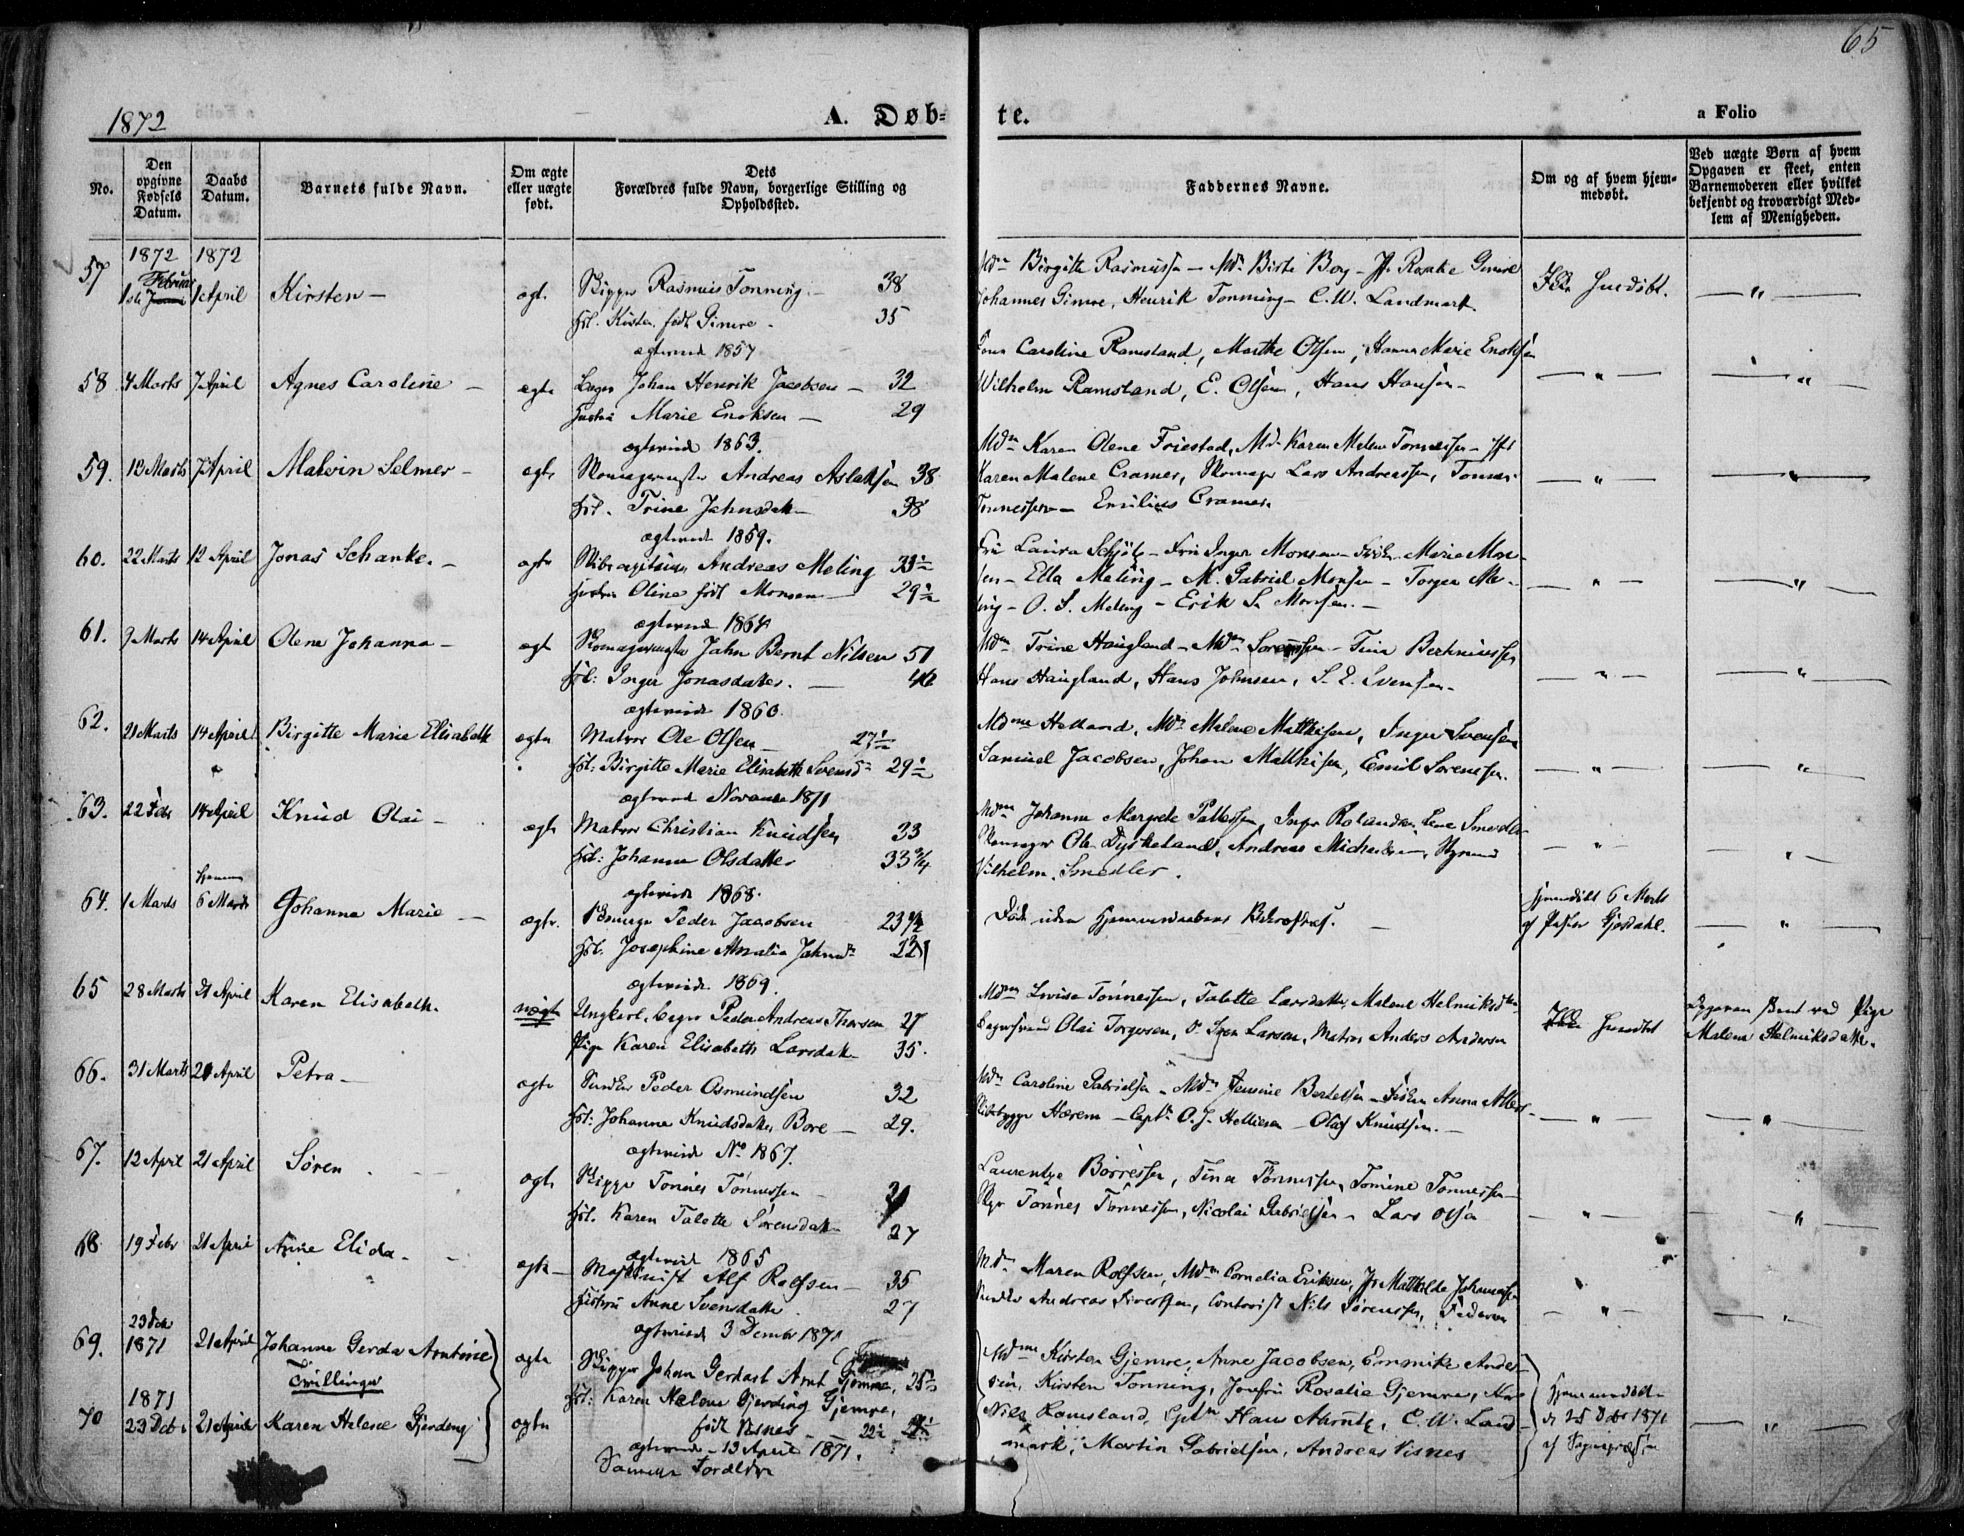 65
1872
A. Døb-
te.
a Folio
No.
Den opgivne Fødsels Datum.
Daabs Datum.
Barnets fulde Navn.
Om ægte eller uægte født.
Dets Forældres fulde Navn, borgerlige Stilling og Opholdssted.
Faddernes Navne.
Om og af hvem hjem-medøbt.
Ved uægte Børn af hvem Opgaven er skeet, enten Barnemoderen eller hvilket bekjendt og troværdigt Med-lem af Menigheden.
1872 1872
57 Februar 1 April Kirsten - ægte Skipper Rasmus Tonning - 38
Kirsten født Gimre - 35
ægteviede 1857
Mdm Birgitte Rasmussen - Md. Birte Boy -
Johannes Gimre, Henrik Tonning - C. W. Landmark
58 4 Marts 7 April Agnes Caroline - ægte Johan Henrik Jacobsen - 32
Hustru Marie Enoksen - 29
ægteviede 1863.
Caroline Ramsland, Marthe Olsen, Hanna Marie Enoksen
Wilhelm Ramsland, E. Olsen, Hans Hansen -
59. 13 Marts 7 April Malvin Selmer - ægte Skomagermester Andreas Aslaksen 38
Trine Jahnsdatter - 38
ægteviede 1859.
Mdm Karen Olene Friestad, Md. Karen Malene Tønnessen -
Karen Malene Cramer, Skomager Lars Andreassen, Tønnes
Tønnessen - Emilius Cramer.
60. 22 Marts 12 April Jonas Schanke. - ægte Andreas Meling 33½
Hustru Oline født Monsen - 29½
ægteviede 1864
Laura Schjøtz - Inger Monsen - Marie Mon-
sen - Ella Meling - M. Gabriel Monsen - Torger Me-
ling - O. S. Meling - Erik S. Monsen. -
61. 9 Marts 14 April Olena Johanna - ægte Skomagermester Jahn Bernt Nilsen 51
Inger Jonasdatter. - 46
ægteviede 1860.
Mdm Trine Haugland - Mdm Sørensen - Tina Berthniussen
Hans Haugland, Hans Johnsen, S. E. Svensen -
62. 21 Marts 14 April Birgitte Marie Elisabeth ægte Matros Ole Olsen - 27½
Birgitte Marie Elisabeth Svensd. 29½
ægteviede November 1871
Mdme Helland, Md. Malene Matthisen, Inger Svensen
Samuel Jacobsen, Johan Matthisen, Emil Sørensen.
63. 22 Febr 14 April Knud Olai - ægte Matros Christian Knudsen 33
Johanna Olsdatter 33¾
ægteviede 1868.
Mdm Johanna Margrete Pallesen, Inger Rolandsen, Lene Smedler
Skomager Ole Dyskeland, Andreas Michaelsen,
Vilhelm Smedler.
64. 1 Marts 6 Marts Johanna Marie - ægte Peder Jacobsen 23½
Josephine Amalia Jahnsd.
ægteviede 1869.
Død uden Hjemmedaabens Bekræftelse.
hjemdøbt 6 Marts
af Pastor Gjesdahl.
65 28 Marts 21 April Karen Elisabeth. uægte Ungkarl, Bager Peder Andreas Thorsen 27
Pige Karen Elisabeth Larsdatter 35.
Mdm Lovise Tønnessen, Talette Larsdatter, Malene Helmiksd.
Bagersvend Olai Torgersen, Sven Larsen, Matros Anders Andersen
Ikke hjemdøbt
Opgaven skeet ved Pige
Malene Helmiksdatter.
66. 31 Marts 21 April Petra - ægte Peder Osmundsen 32
Johanna Knudsdatter Bore - 29.
ægteviede No. 1867.
Mdm Caroline Gabrielsen - Mdm Jensine Bertelsen - Anna Albert
Skibsbygger Hærem - Capt. O. J. Helliesen - Olaf Knudsen. -
67. 12 April 21 April Søren. ægte Skipper Tønnes Tønnessen - 31
Karen Talette Sørensdatter 27
ægteviede 1865
Laurentze Børresen, Tina Tønnessen, Tomine Tønnessen -
Tønnes Tønnessen, Nicolai Gabrielsen - Lars Olsen
68 19 Febr 21 April Anne Elida - ægte - Maskinist Alf Rolfsen - 35
Hustru Anne Svensdatter 27
ægteviede 3 December 1871
Mdm Maren Rolfsen, Mdm Cornelia Eriksen, Mathilde Johannsen
Andreas Sivertsen, Controrist Nils Sørensen,
69. 23 Dcbr 1871 21 April Johanne Gerda Arntine ægte Skipper Johan Gerhart Arnt Gjemre, 25½
Tvillinger
Karen Malene Gjerding Gjemre,
født Visnes - 22½
70 1871 23 Decbr 21 April Karen Helene Gjerding ægte
ægteviede - 13 April 1871.
Samme Forældre
Mdme Kirsten Gjemre, Anne Jacobsen, Emmike Ander-
sen, Kirsten Tonning, Jomfru Rosalie Gjemre,
Nils Ramsland, Cptn Hans Ahrntz, C. W. Land-
mark, Martin Gabrielsen, Andreas Visnes
Hjemmedøbt
d. 25 Dcbr 1871
af Sognepræsten